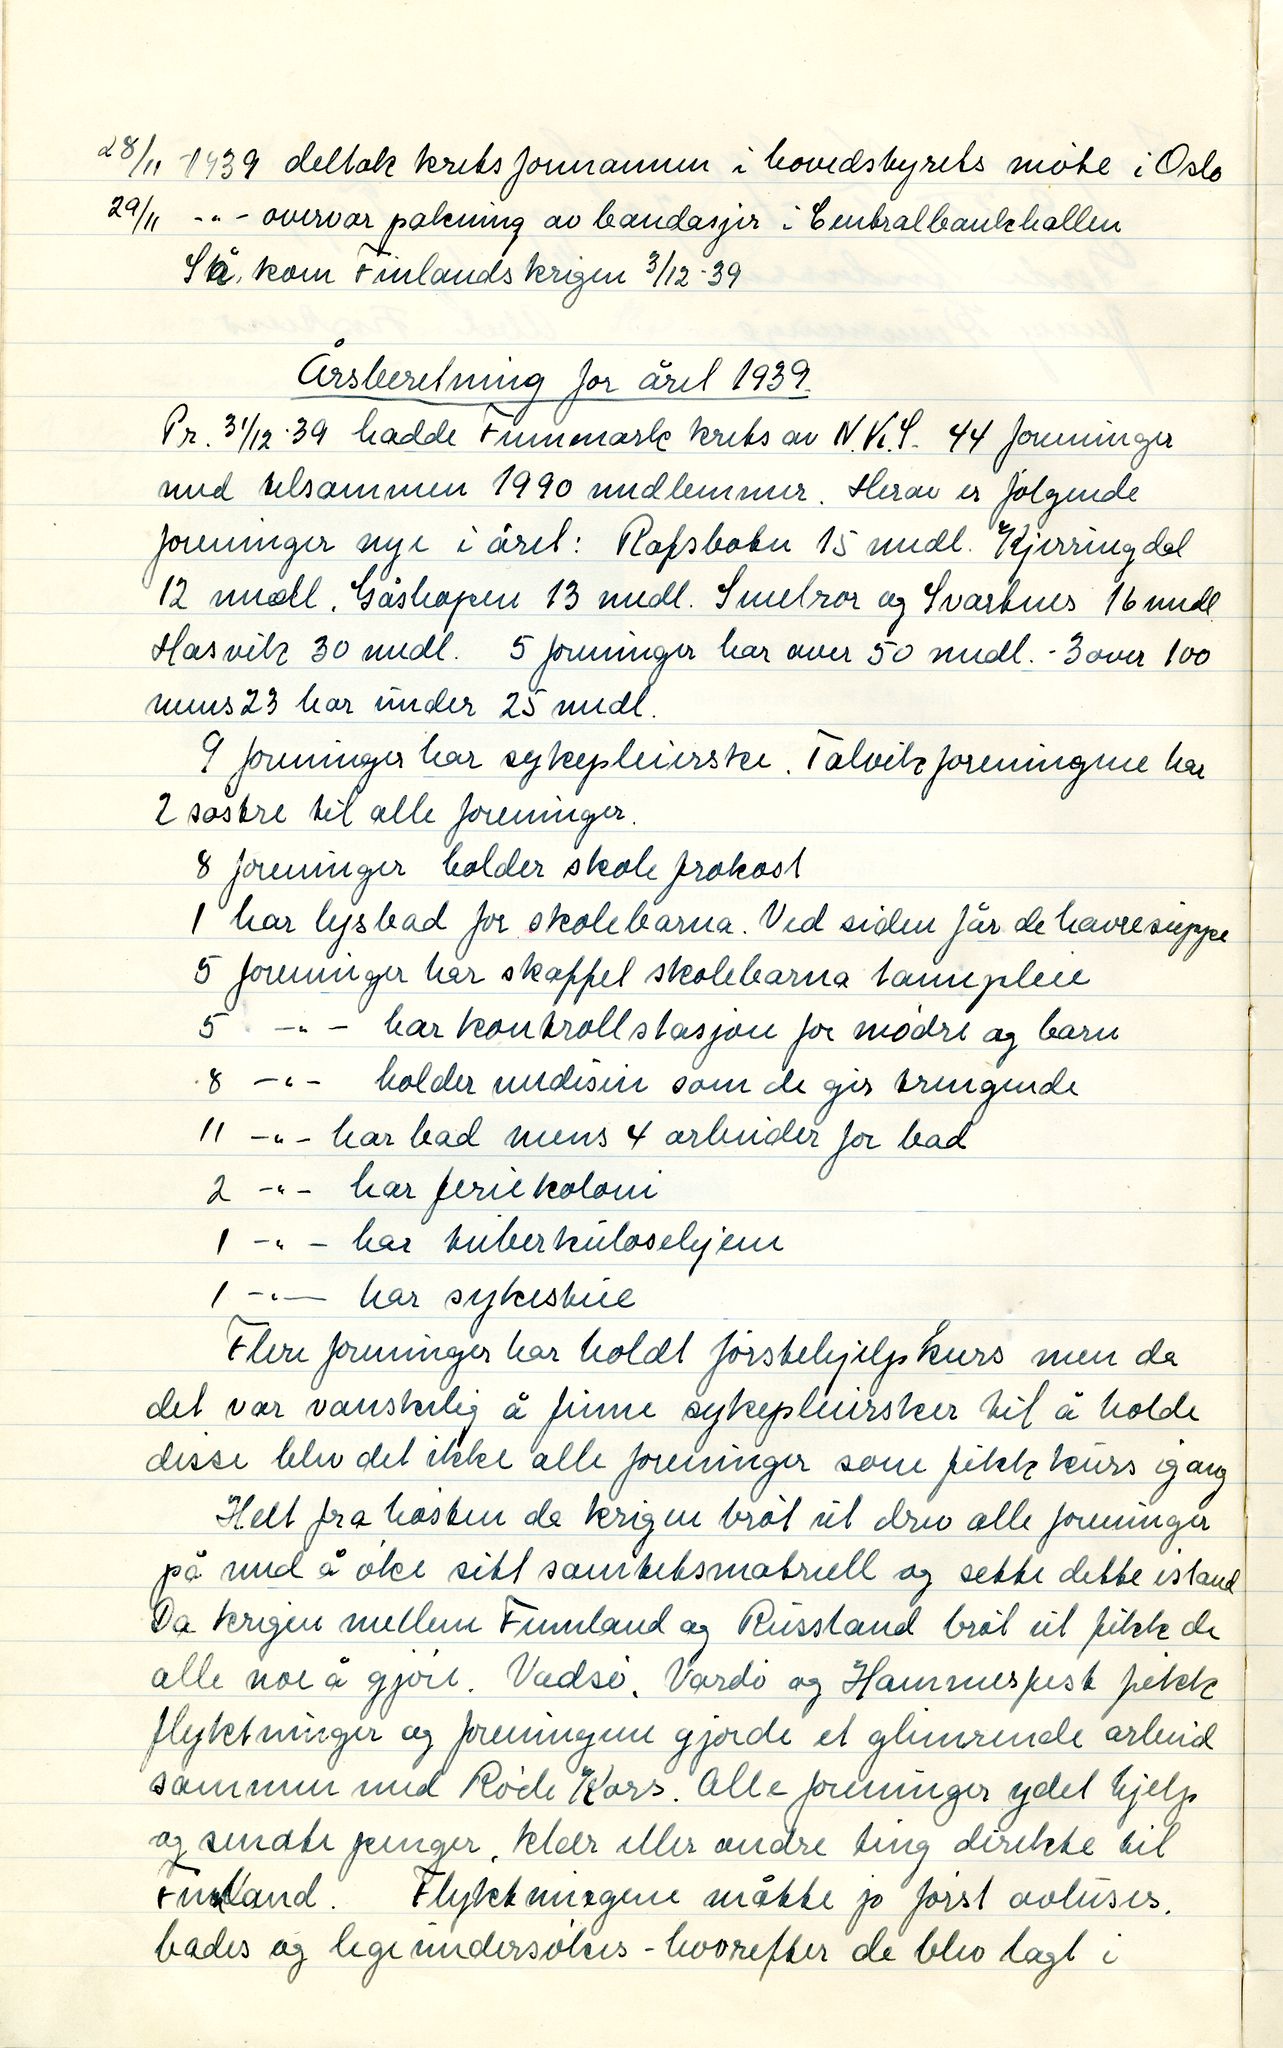 28/11 1939 deltok kretsformannen i hovedstyrets møte i Oslo
29/11 -"- overvar pakning av bandasjer i Centralbankhallen
Så kom Finlandskrigen 3/12-39
Årsberetning for året 1939.
Pr. 31/12-39 hadde Finnmark krets av N.K.S. 44 foreninger
med tilsammen 1990 medlemmer. Herav er følgende
foreninger nye i året: Rafsbotn 15 medl. Kjerringdal
12 medl. Gåshopen 13 medl. Smelror og Svartnes 16 medl.
Hasvik 30 medl. 5 foreninger har over 50 medl. - 3 over 100
mens 23 har under 25 medl.
9 foreninger har sykepleierske. Talvikforeningene har
2 søstre til alle foreninger.
8 foreninger holder skolefrokost
1 har lysbad for skolebarna. Ved siden får de havresuppe
5 foreninger har skaffet skolebarna tannpleie
5 -"- har kontrollstasjon for mødre og barn
8 -"- holder medisin som de gir trengende
11 -"- har bad mens 4 arbeider for bad
2 -"- har feriekoloni
1 -"- har tuberkulosehjem
1 -"- har sykestue
Flere foreninger har holdt førstehjelpskurs men da
det var vanskelig å finne sykepleiersker til å holde
disse blev det ikke alle foreninger som fikk kurs igang
Helt fra høsten da krigen brøt ut drev alle foreninger
på med å øke sitt sanitetsmatriell og sette dette istand
Da krigen mellem Finnland og Russland brøt ut fikk de
alle noe å gjøre. Vadsø, Vardø og Hammerfest fikk
flyktninger og foreningene gjorde et glimrende arbeid
sammen med Røde Kors. Alle foreninger ydet hjelp
og sendte penger, klær eller andre ting direkte til
Finland. Flyktningene måtte jo først avluses,
bades og legeundersøkes - hvorefter de blev lagt i